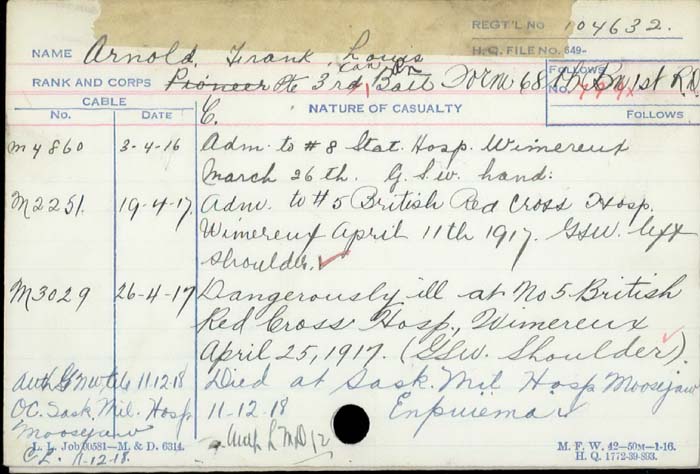 REGT'L NO 104632.
NAME Arnold, Frank, Louis H.Q. FILE NO. 649-
RANK AND CORPS Pioneer Pte 3rd Can Batt Form 68th Bn 1st R.D. FOLLOWS
NO.
CABLE
No. DATE NATURE OF CASUALTY FOLLOWS
M4860 3-4-16 Adm. to #8 Stat. Hosp. Wimereux
March 26th. G.S.W. hand.
M2251. 19-4-17. Adm. to #5 British Red Cross Hosp.
Wimereux April 11th 1917. GSW. left
shoulder. ✓
M3029 26-4-17 Dangerously ill at No 5 British
Red Cross Hosp., Wimereux
April 25, 1917. (GSW. Shoulder).
11.12.18 Died at Sask. Mil Hosp Moosejaw
OC. Sask. Mil. Hosp 11-12-18
Moosejaw Auth L MD 12
C.L. 11-12-18.
L. L. Job 90581—M. & D. 6314. M. F. W. 42—50M—1-16.
H. Q. 1772-39-893.